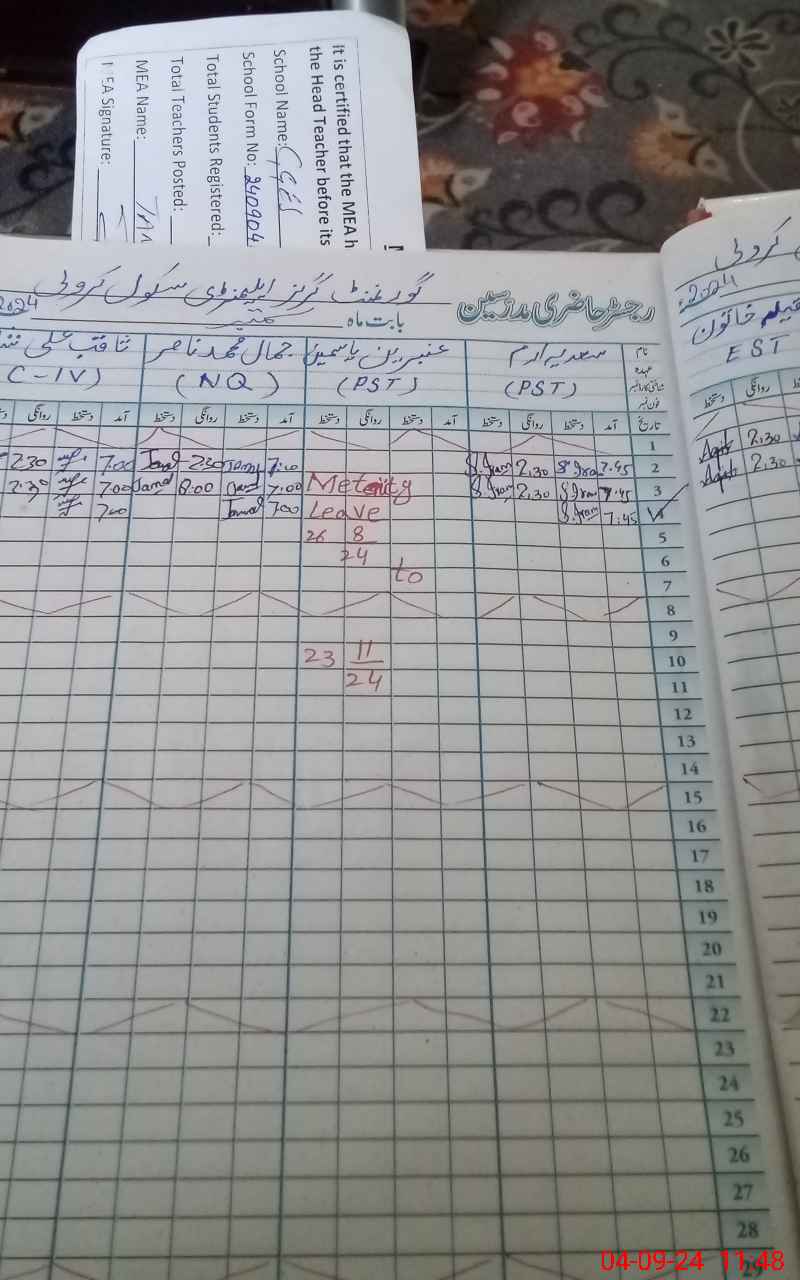 It is certified that the MEA h
the Head Teacher before its
School Name: GGES
School Form No: 240904
Total Students Registered:
Total Teachers Posted:
MEA Name:
EA Signature:
گورنمنٹ گرلز ایلیمنٹری سکول کرولی
رجسٹر حاضری مدرسین
بابت ماہ ستمبر 2024
نام سعدیہ ارم عنبرین یاسمین جمال محمد ناصر ثاقب علی
عہدہ (PST) (PST) (NQ) (C-IV)
شناختی کارڈ نمبر
فون نمبر
تاریخ آمد دستخط روانگی دستخط آمد دستخط روانگی دستخط آمد دستخط روانگی دستخط آمد دستخط روانگی
1
2 7.45 2.30 7:00 2:30 7.00 2.30
3 7.45 2.30 7:00 8.00 7.00 2.30
7:45 700 7.00
Meternity
Leave
26 8
24
to
23 11
24
5
6
7
8
9
10
11
12
13
14
15
16
17
18
19
20
21
22
23
24
25
26
27
28
29
2024
خاتون
EST
روانگی دستخط
2.30
2.30
04-09-24 11:48